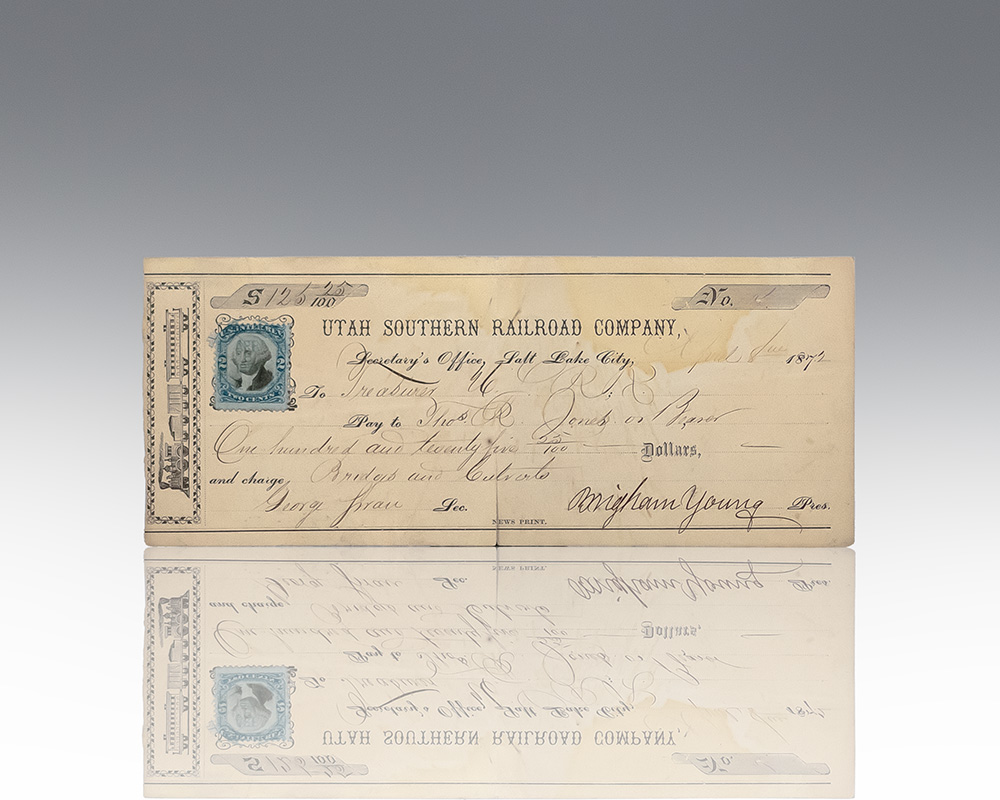 $125 25/100
No.
UTAH SOUTHERN RAILROAD COMPANY,
Secretary's Office, Salt Lake City, 187
U.S. INTER. REV.
TWO CENTS
To Treasurer U. S. R. R.
Pay to Thos. R. Jones or Bearer
One hundred and twenty five 25/100 Dollars,
and charge Bridges and Culverts
Sec. Brigham Young Pres.
NEWS PRINT.